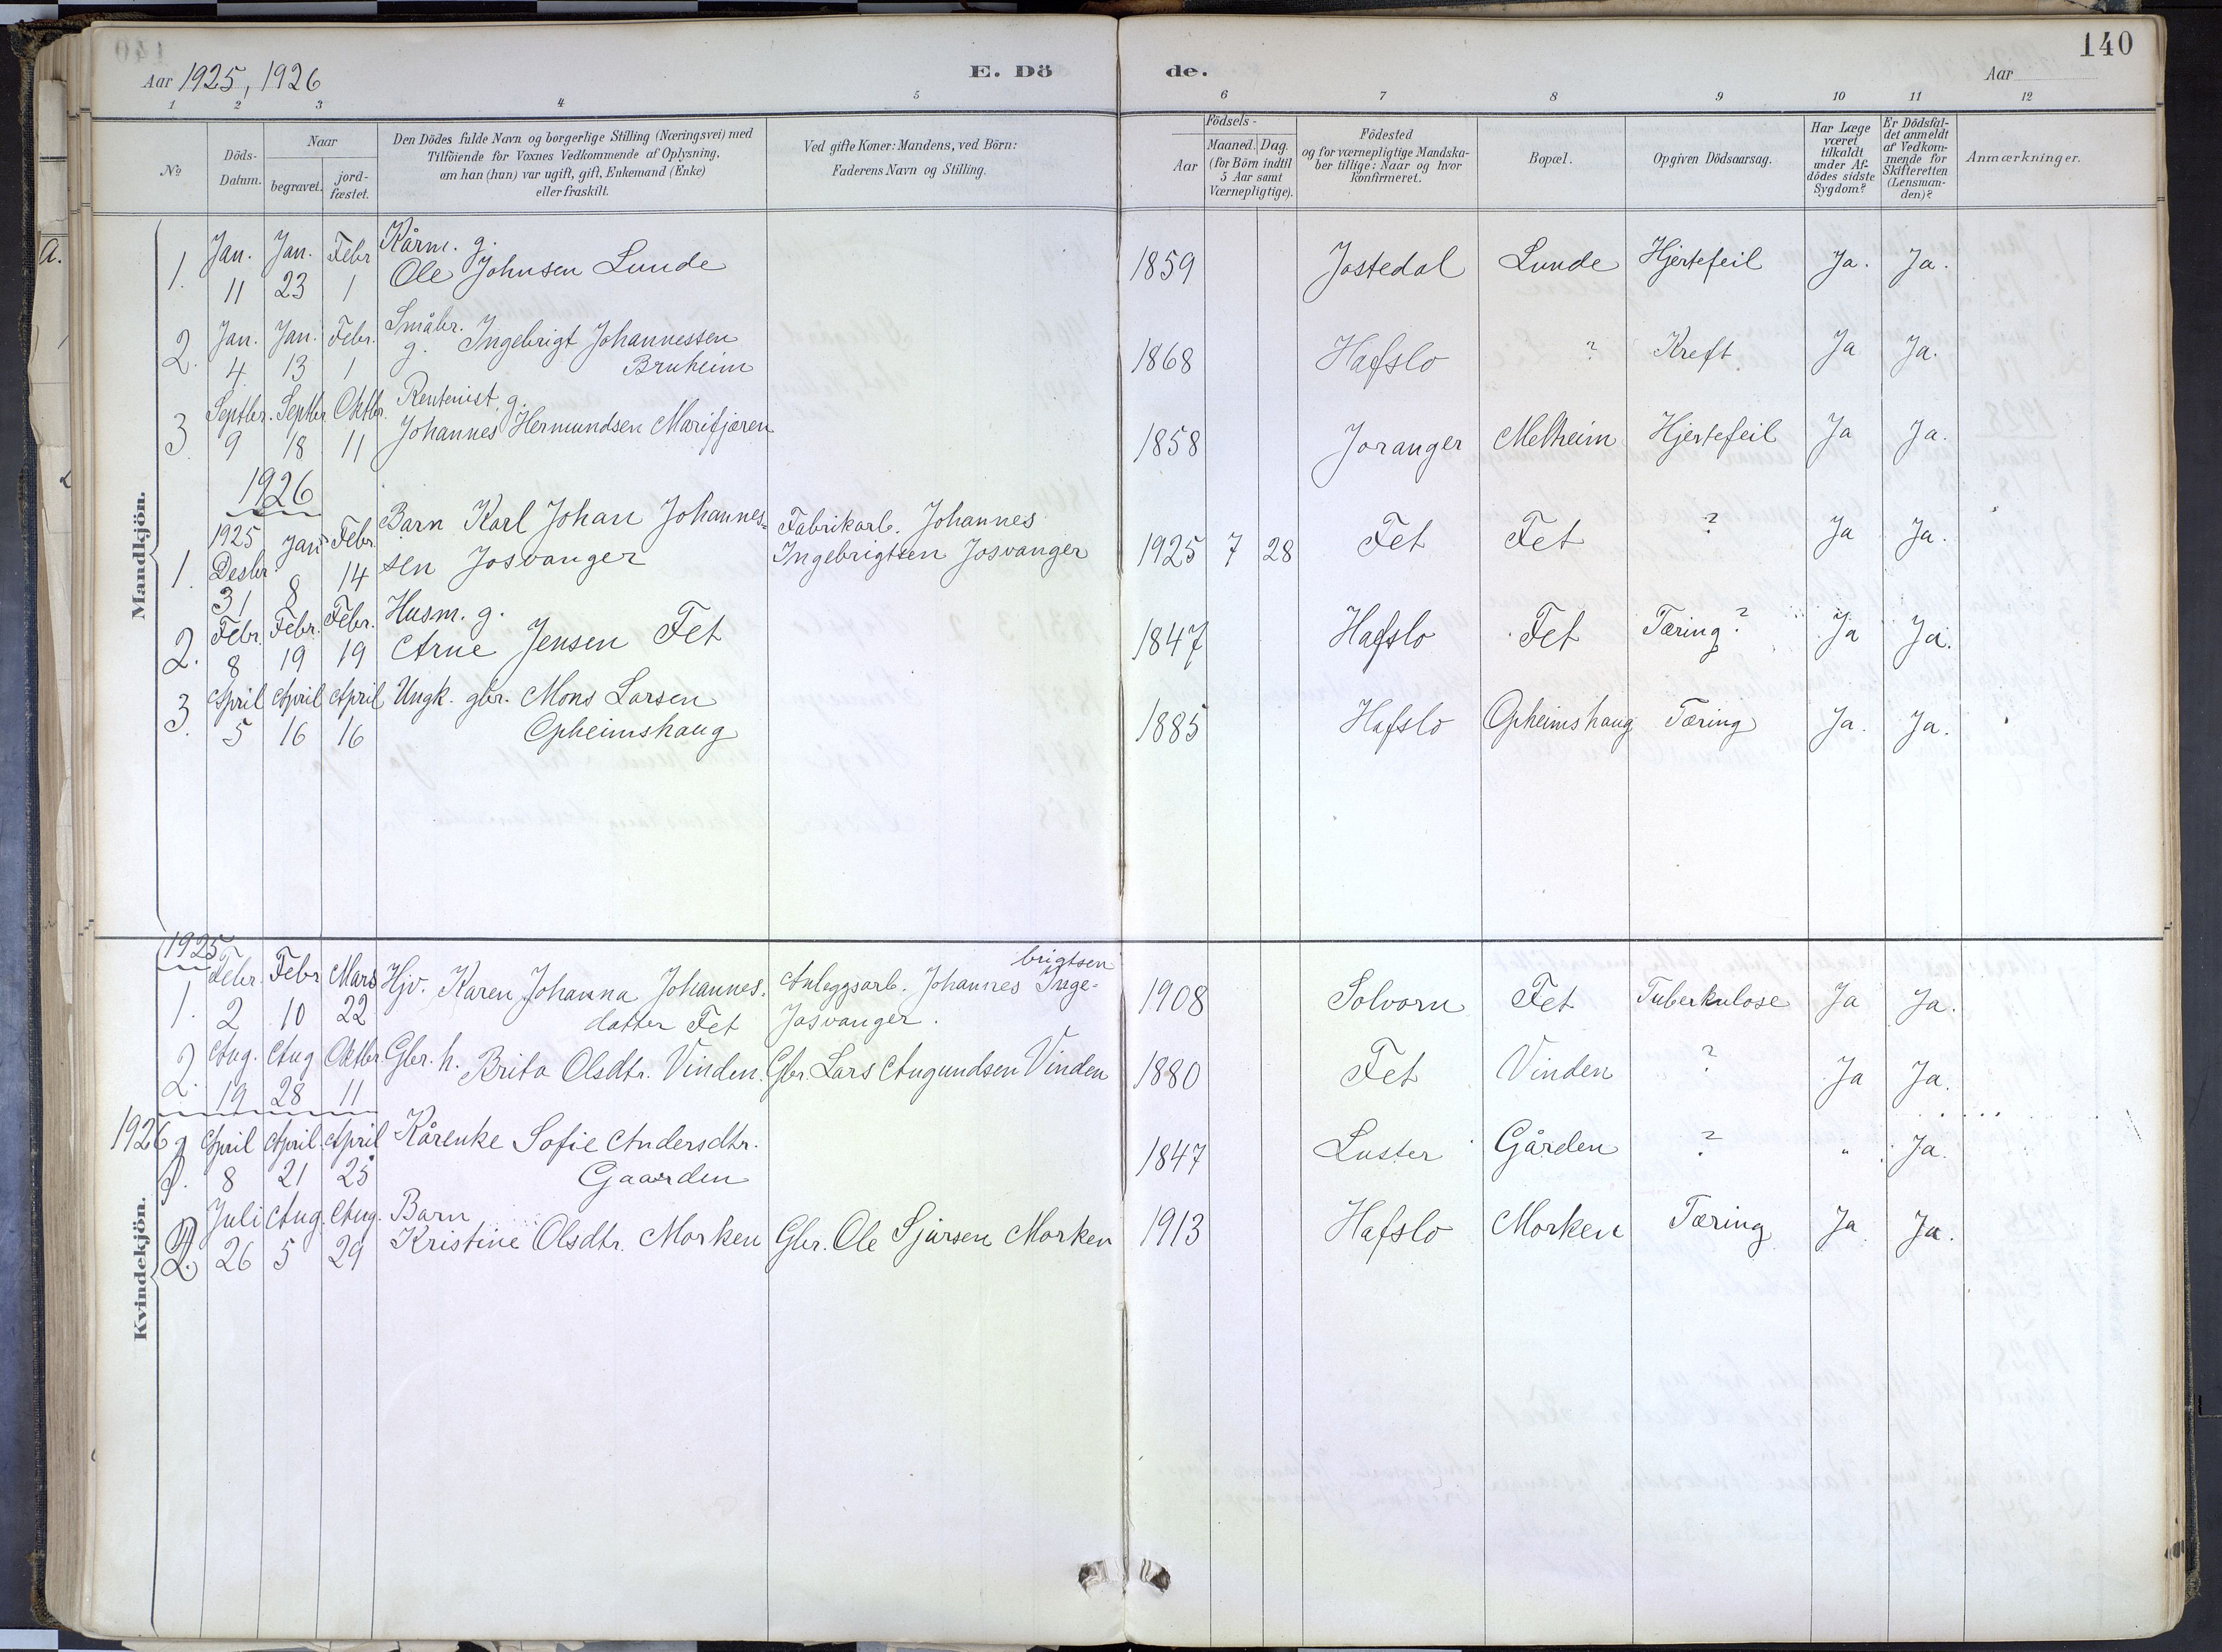 140
Aar 1925, 1926
E. Dö de.
Aar
1 2 3 4 5 6 7 8 9 10 11 12
No
Döds-
Datum.
Naar
begravet.
jord-
fæstet.
Den Dödes fulde Navn og borgerlige Stilling (Næringsvei) med
Tilföiende for Voxnes Vedkommende af Oplysning,
om han (hun) var ugift, gift, Enkemand (Enke)
eller fraskilt.
Ved gifte Koner: Mandens, ved Börn:
Faderens Navn og Stilling.
Födsels-
Aar
Maaned. Dag.
(for Börn indtil
5 Aar samt
Værnepligtige).
Födested
og for værnepligtige Mandska-
ber tillige: Naar og hvor
konfirmeret.
Bopæl.
Opgiven Dödsaarsag.
Har Læge
været
tilkaldt
under Af-
dödes sidste
Sygdom?
Er Dödsfal-
det anmeldt
af Vedkom-
mende for
Skifteretten
(Lensman-
den)?
Anmærkninger.
Mandkjön.
Jan. Jan. Febr Kårm. g.
1. 11 23 1 Ole Johnsen Lunde 1859 Jostedal Lunde Hjertefeil Ja. Ja.
Jan. Jan. Febr. Småbr.
2. 4. 13 1 g. Ingebrigt Johannessen
Bruheim 1868 Hafslo ? Kreft Ja Ja.
Septbr. Septbr Oktbr. Rentenist, g.
3. 9 18 11 Johannes Hermundsen Marifjæren 1858 Joranger Melheim Hjertefeil Ja Ja.
1926
1925
1. Desbr. 31 Jan 8 Febr. 14 Barn Karl Johan Johannes=
sen Josvanger Fabrikarb. Johannes
Ingebrigtsen Josvanger 1925 7 28 Fet Fet ? Ja Ja.
Febr. Febr. Febr. Husm. g.
2. 8 19 19 Arne Jensen Fet 1847 Hafslo Fet Tæring? Ja Ja.
April April April Ungk. gbr. Mons Larsen
3. 5 16 16 Opheimshaug 1885 Hafslo Opheimshaug Tæring Ja. Ja.
Kvindekjön.
1925
Febr. Febr Mars Hjv. Karen Johanna Johannes. Anleggsarb. Johannes Inge-
brigtsen
1. 2 10 22 datter Fet Josvanger. 1908 Solvorn Fet Tuberkulose Ja Ja.
Aug. Aug Oktbr. Gbr. h.
2. 19 28 11 Brita Olsdtr. Vinden. Gbr. Lars Augundsen Vinden 1880 Fet Vinden ? Ja Ja.
1926
April April April Kårenke Sofie Andersdtr.
8 21 25 Gaarden 1847 Luster Gården ? " Ja.
Juli Aug. Aug. Barn
2. 26 5 29 Kristine Olsdtr. Morken Gbr. Ole Sjursen Morken 1913 Hafslo Morken Tæring Ja. Ja.